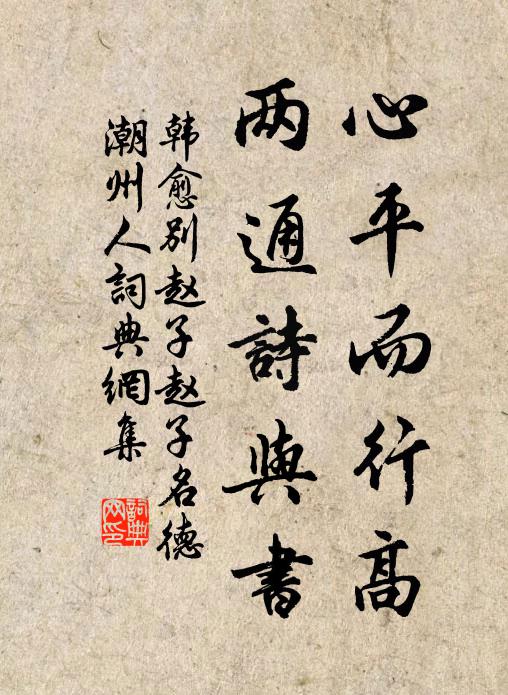 心平而行高
两通詩與書
韩愈别赵子赵子名德
潮州人詞典網集
詞典
网印